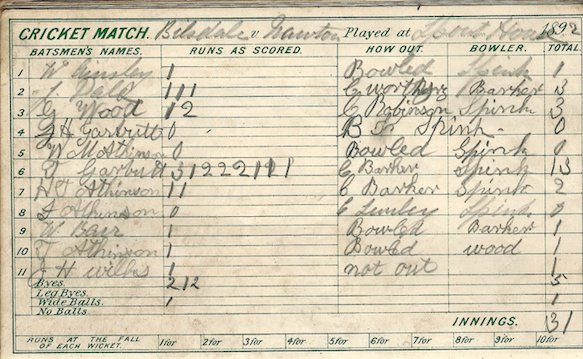 CRICKET MATCH. Bilsdale v Nawton Played at Spout House 1892
BATSMEN'S NAMES. RUNS AS SCORED. HOW OUT. BOWLER. TOTAL.
1 W 1 Bowled Spink 1
2 111 C Barker 3
3 G Wood 12 C Robinson Spink 3
4 G H Garbutt 0 B Spink 0
5 W M Atkinson 0 Bowled Spink 0
6 Garbutt 31222111 C Barker Spink 13
7 Atkinson 11 C Barker Spink 2
8 Atkinson 0 C Lumley Spink 0
9 W Bair 1 Bowled Barker 1
10 Atkinson 1 Bowled wood 1
11 J H 1 not out 1
Byes. 212 5
Leg Byes.
Wide Balls. 1 1
No Balls.
INNINGS. 31
RUNS AT THE FALL OF EACH WICKET. 1 for 2 for 3 for 4 for 5 for 6 for 7 for 8 for 9 for 10 for